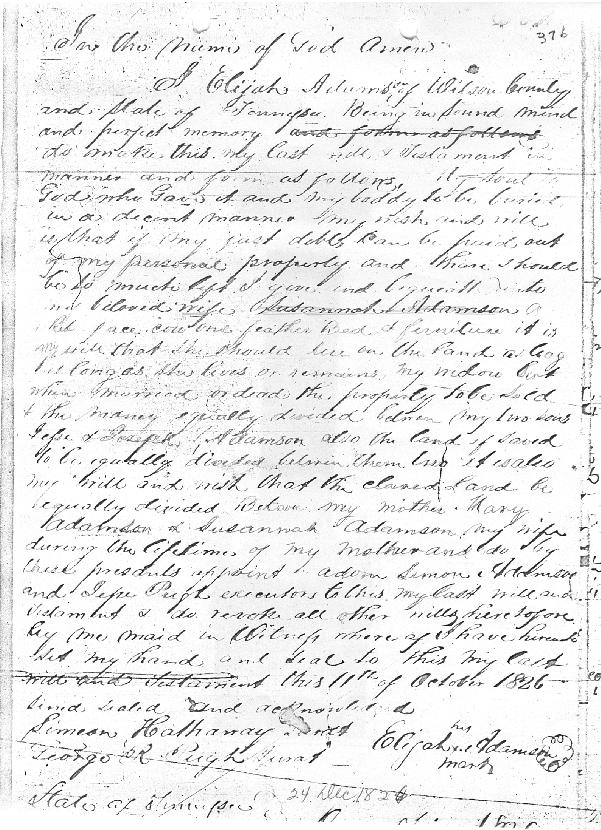 376
In the Name of God Amen
I Elijah Adamson of Wilson County
and State of Tennysee Being in Sound mind
and perfect memory and form as follows
do make this my last will & Testament in
manner and form as follows, my soul to
God who Gave it and my boddy to be buried
in a decent manner & my wish and will
is that if my just debts can be paid out
of my personal property and there should
be so much left I give and bequeath unto
my beloved wife Susannah Adamson a
face cow one feather bed & furniture it is
my will that she should live on the land as long
as long as she lives or remains my widow but
when married or dead the property to be sold
& the money equally divided between my two sons
Jesse & Joseph Adamson also the land if saved
to be equally divided between them two it is also
my will and wish that the cleared Land be
equally divided Between my mother Mary
Adamson & Susannah Adamson my wife
during the lifetime of my mother and do by
these presents appoint & adorn Simon Adamson
and Jesse Pugh executors to this my last will and
testament & do revoke all other wills heretofore
by me maid in Witness where of I have hereunto
set my hand and seal to this my last
will and Testament this 11th of October 1826
Sind sealed and acknowled
Simeon Hathaway Jurat
George R Pugh Jurat
Elijah his Adamson
mark
24 Dec 182
State of Tennysee